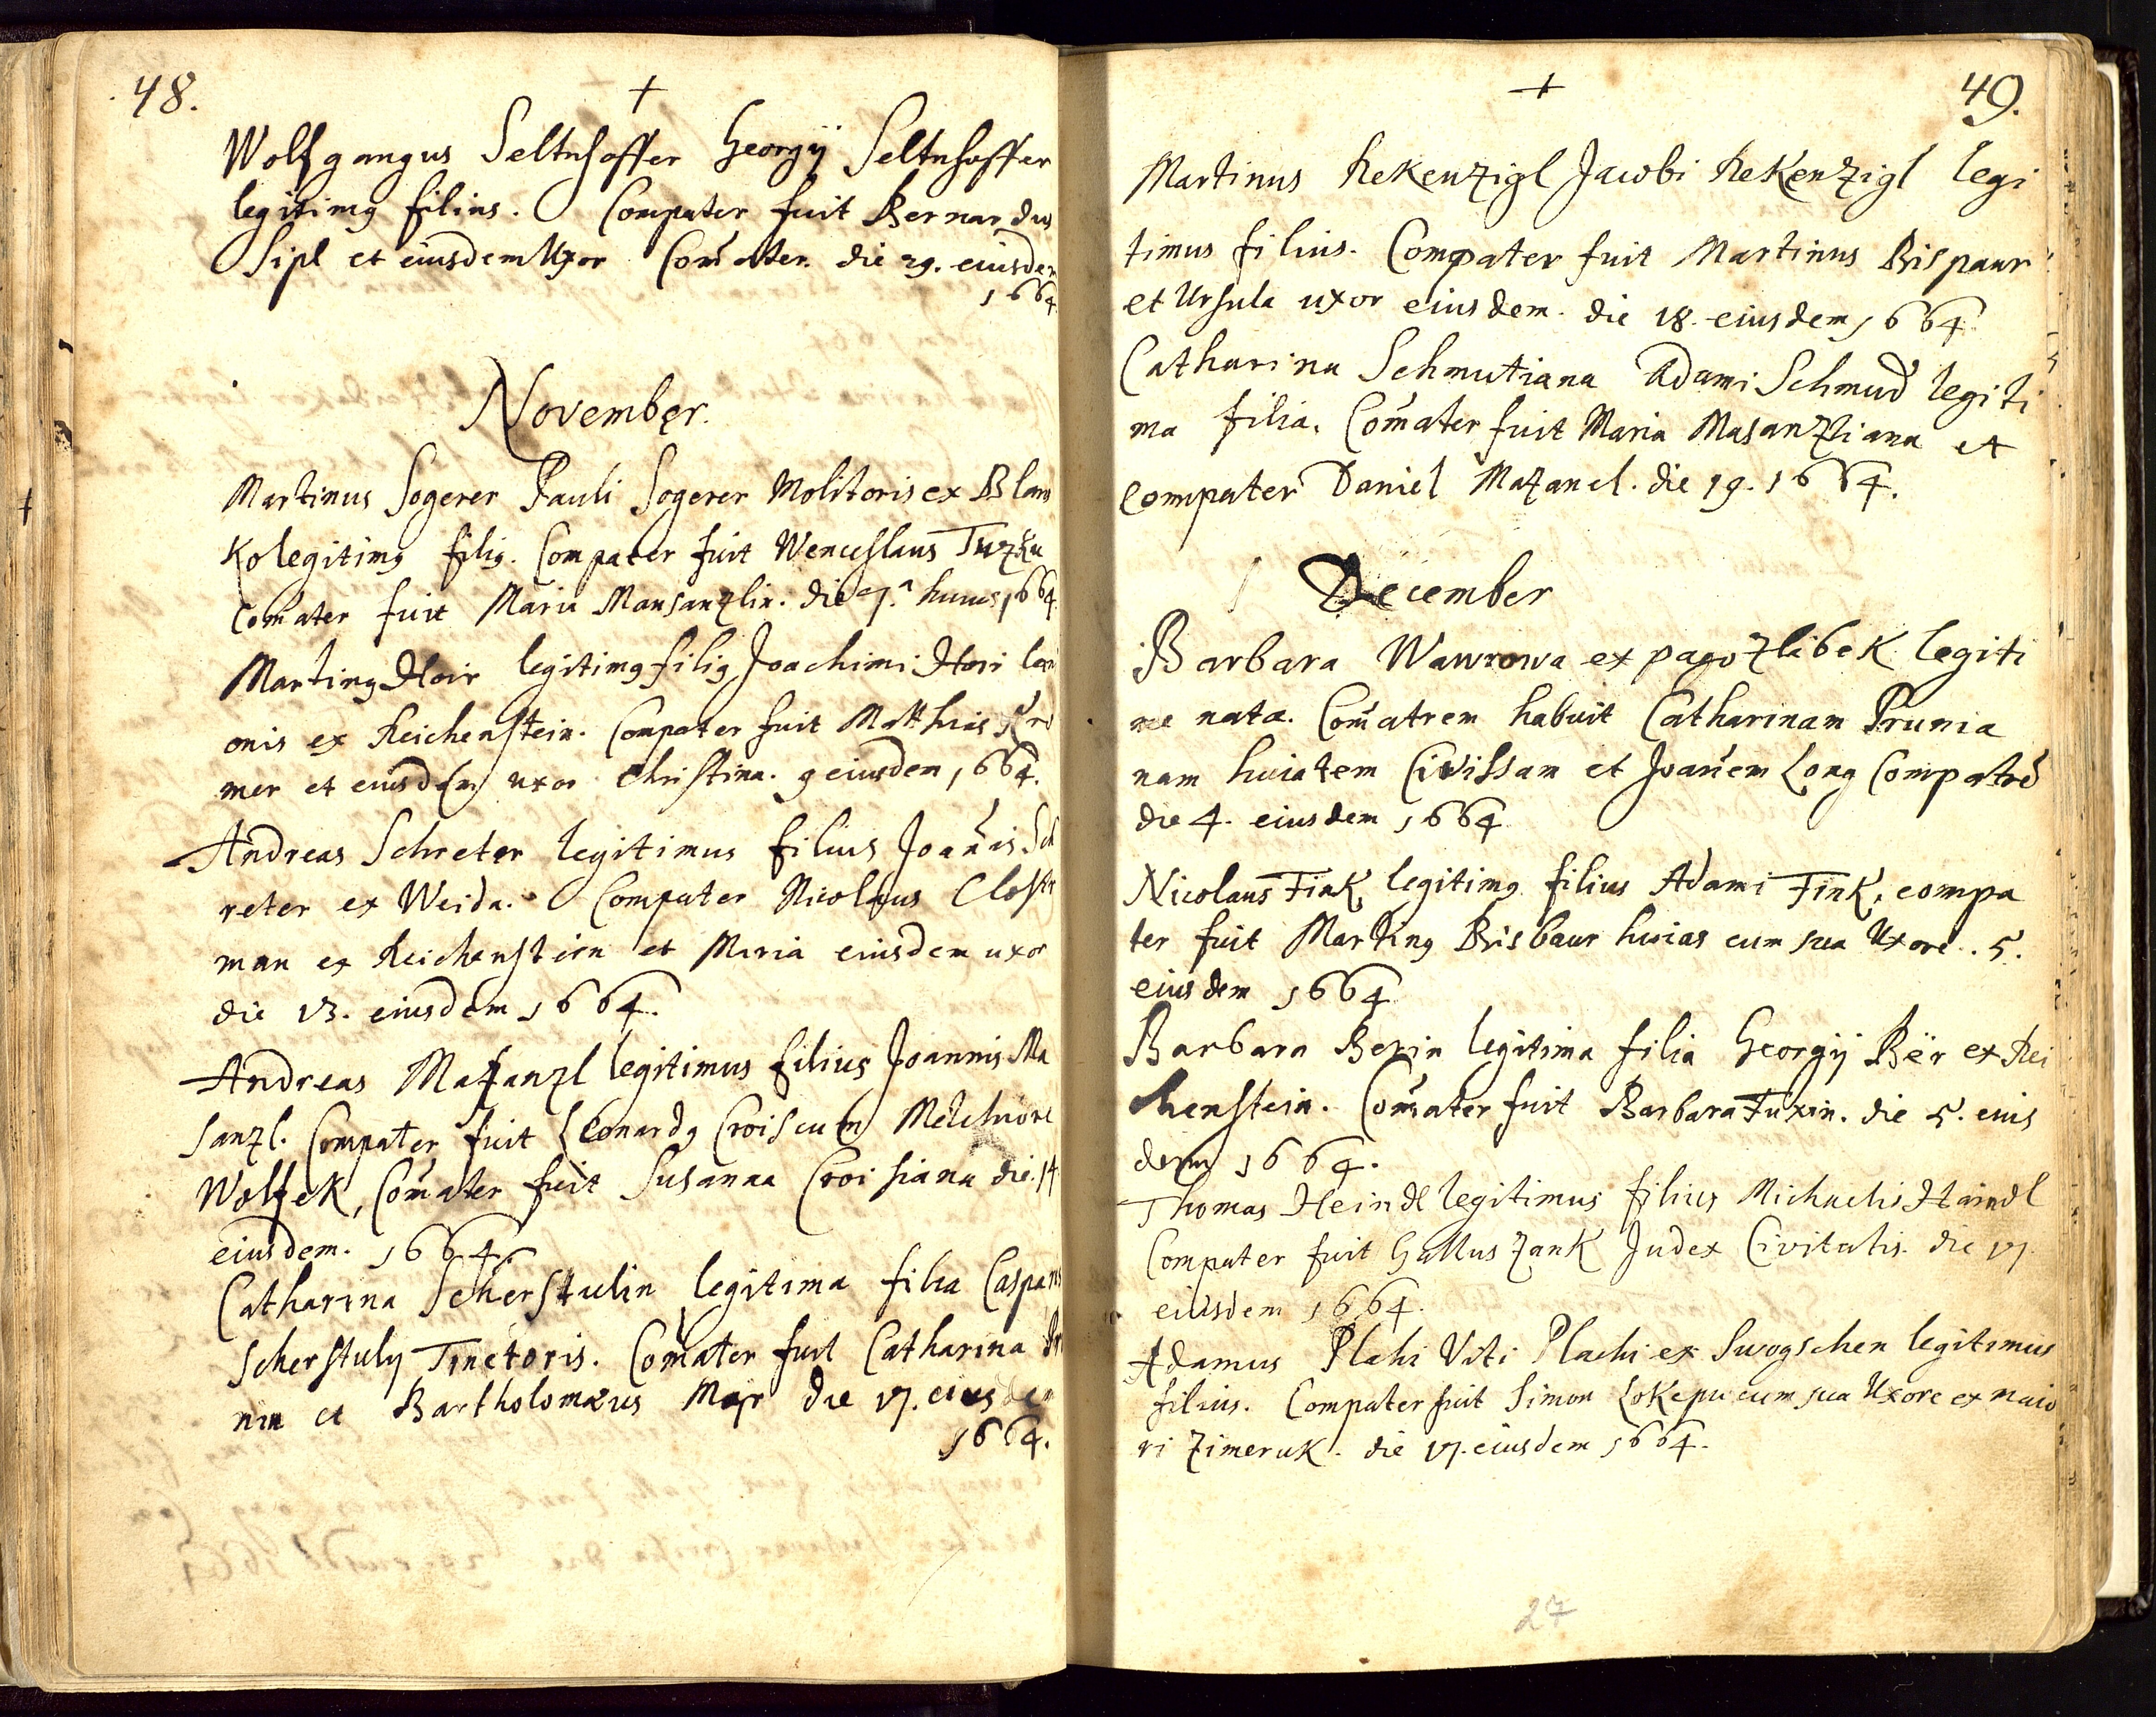 48.
+
Wolfgangus Seltnhoffer Georgij Seltnhoffer
legitimꝯ filius. Compater fuit Bernardus
Sipl et eiusdem Uxor Com̃ater. die 29. eiusdem
1664.
November.
Martinus Sogerer Pauli Sogerer Molitoris ex Blans
ko legitimꝯ filiꝯ. Compater fuit Wenceslaus
Com̃ater fuit Maria Mansanzlin. die 7.ᵃ huius 1664
Martinꝯ Hoir legitimꝯ filiꝯ Joachimi Hoir
onis ex Reichenstein. Compater fuit Matthias
mer et eiusdem uxor Christina. 9 eiusdem 1664.
Andreas Schreter legitimus filius Joañis Sch
reter ex Weida. Compater Nicolaus Clostr
man ex Reichenstein et Maria eiusdem uxor
die 13. eiusdem 1664.
Andreas Mazanzl legitimus filius Joannis Ma
sanzl. Compater fuit Leonardꝯ Crois cum Melchiore
Wolfek, Com̃ater fuit Susanna Croisiana die 14
eiusdem. 1664.
Catharina Scherstulin legitima filia Caspari
Scherstuly Tinctoris. Com̃ater fuit Catharina
nin et Bartholomæus Mayr die 17. eiusdem
1664.
+
49.
Martinus Rekenzigl Jacobi Rekenzigl legi
timus filius. Compater fuit Martinus Brispaur
et Ursula uxor eiusdem. die 18. eiusdem 1664.
Catharina Schmutiana Adami Schmud legiti
ma filia. Com̃ater fuit Maria Masanzliana et
compater Daniel Mazanel. die 19. 1664.
December
Barbara Wawrowa ex pago Zlibek legiti
me nata. Com̃atrem habuit Catharinam Prunia
nam huiatem Civissam et Joañem Long Compatrẽ
die 4. eiusdem 1664
Nicolaus Fink legitimꝯ filius Adami Fink, compa
ter fuit Martinꝯ Brisbaur huias cum sua Uxore. 5.
eiusdem 1664
Barbara Berin legitima filia Georgij Bër ex Rei
henstein. Com̃ater fuit Barbara Fuxin. die 5. eius
dem 1664.
Thomas Heindl legitimus filius Michaelis Haindl
Compater fuit Gallus Zank Judex Civitatis. die 17
eiusdem 1664.
Adamus Plahi Viti Plachi ex Swogschen legitimus
filius. Compater fuit Simon Lokepu cum sua Uxore ex maio
ri Zimeruk. die 17. eiusdem 1664.
27